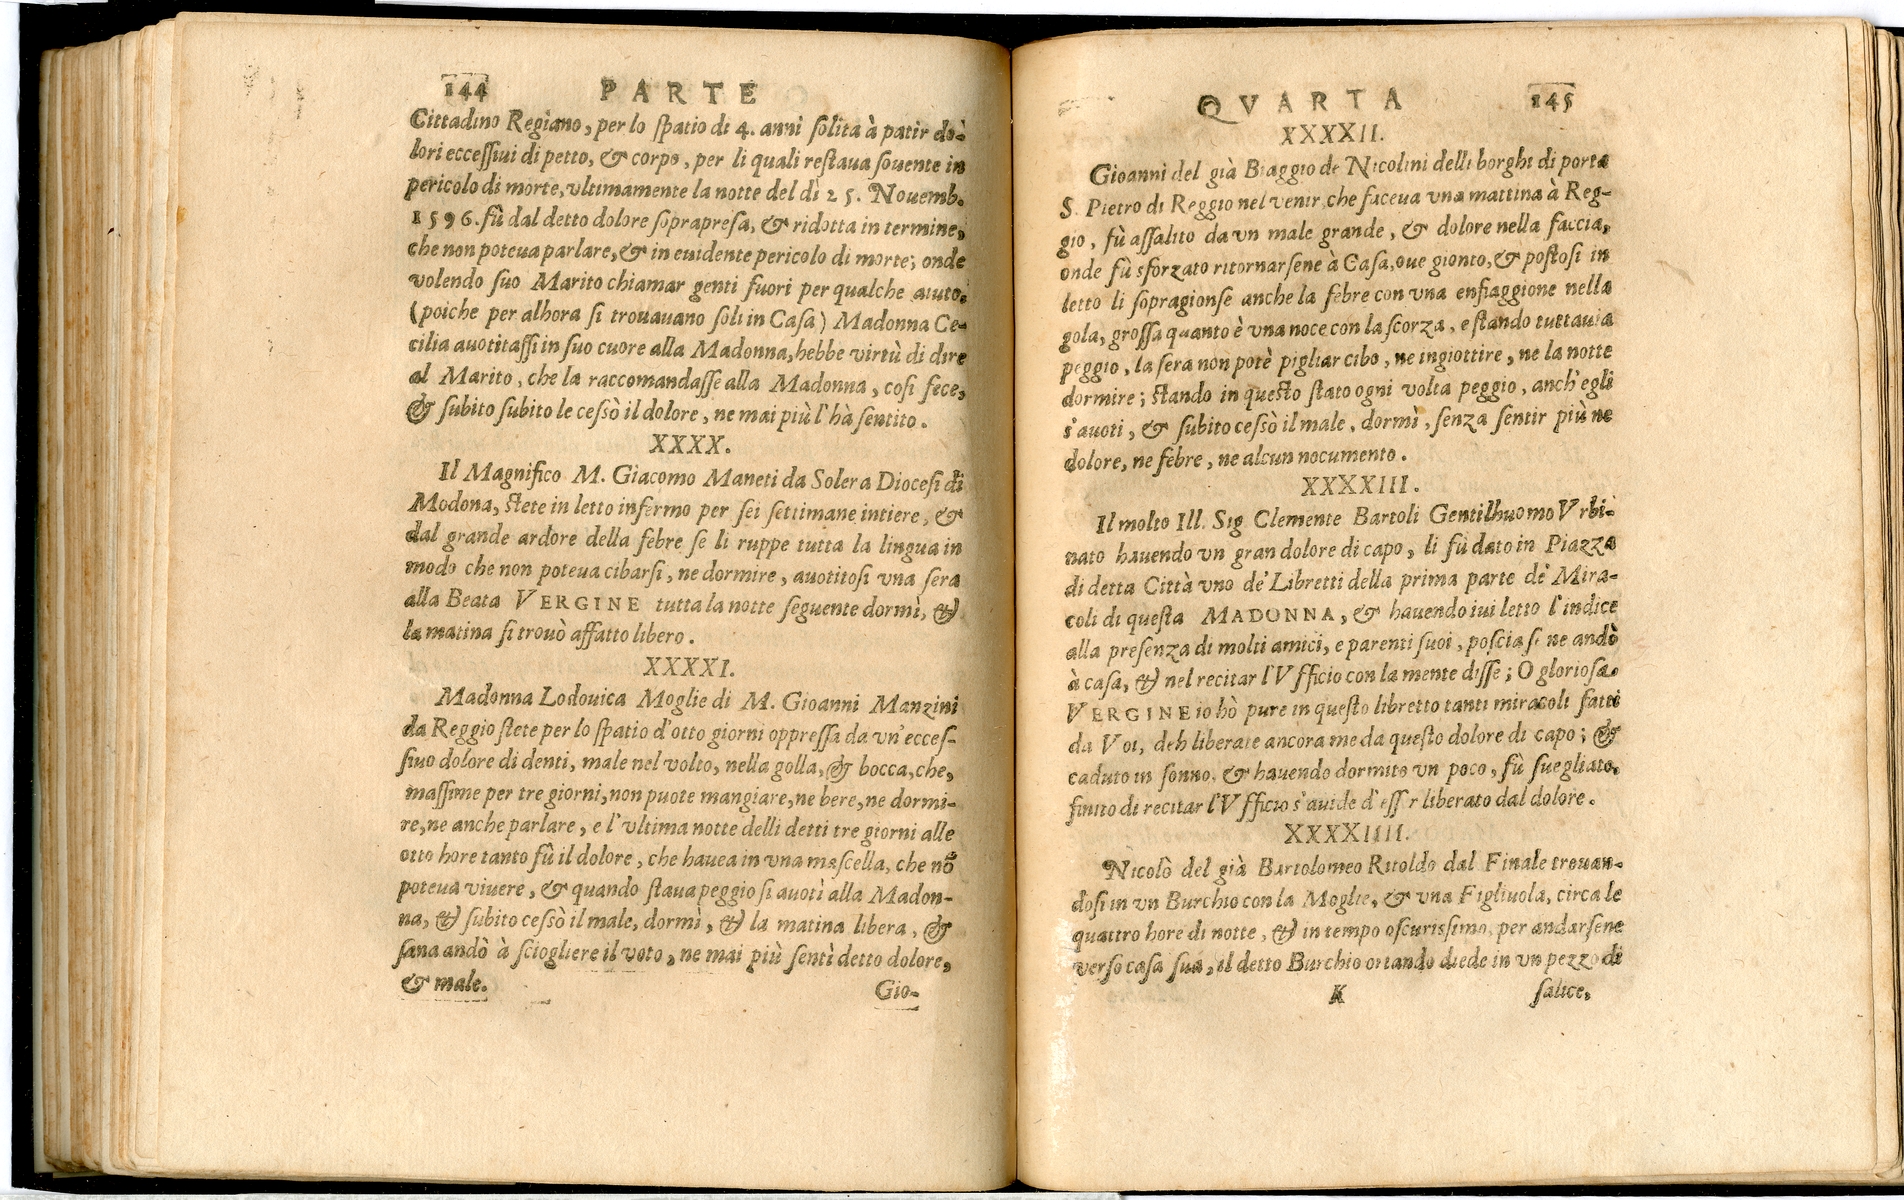 144 PARTE
Cittadino Regiano, per lo spatio di 4. anni solita à patir do-
lori eccessiui di petto, & corpo, per li quali restaua souente in
pericolo di morte, vltimamente la notte del dì 25. Nouemb.
1596. fù dal detto dolore soprapresa, & ridotta in termine,
che non poteua parlare, & in euidente pericolo di morte; onde
volendo suo Marito chiamar genti fuori per qualche aiuto,
(poiche per alhora si trouauano soli in Casa) Madonna Ce-
cilia auotitassi in suo cuore alla Madonna, hebbe virtù di dire
al Marito, che la raccomandasse alla Madonna, cosi fece,
& subito subito le cessò il dolore, ne mai più l'hà sentito.
XXXX.
Il Magnifico M. Giacomo Maneti da Solera Diocesi di
Modona, stete in letto infermo per sei settimane intiere, &
dal grande ardore della febre se li ruppe tutta la lingua in
modo che non poteua cibarsi, ne dormire, auotitosi vna sera
alla Beata VERGINE tutta la notte seguente dormì, &
la matina si trouò affatto libero.
XXXXI.
Madonna Lodouica Moglie di M. Gioanni Manzini
da Reggio stete per lo spatio d'otto giorni oppressa da vn'ecces-
siuo dolore di denti, male nel volto, nella golla, & bocca, che,
massime per tre giorni, non puote mangiare, ne bere, ne dormi-
re, ne anche parlare, e l'vltima notte delli detti tre giorni alle
otto hore tanto fù il dolore, che hauea in vna mascella, che nō
poteua viuere, & quando staua peggio si auotì alla Madon-
na, & subito cessò il male, dormì, & la matina libera, &
sana andò à sciogliere il voto, ne mai più sentì detto dolore,
& male.
Gio-
QVARTA 145
XXXXII.
Gioanni del già Biaggio de Nicolini delli borghi di porta
S. Pietro di Reggio nel venir, che faceua vna mattina à Reg-
gio, fù assalito da vn male grande, & dolore nella faccia,
onde fù sforzato ritornarsene à Casa, oue gionto, & postosi in
letto li sopragionse anche la febre con vna enfiaggione nella
gola, grossa quanto è vna noce con la scorza, e stando tuttauia
peggio, la sera non potè pigliar cibo, ne ingiottire, ne la notte
dormire; stando in questo stato ogni volta peggio, anch'egli
s'auotì, & subito cessò il male, dormì, senza sentir più ne
dolore, ne febre, ne alcun nocumento.
XXXXIII.
Il molto Ill. Sig Clemente Bartoli Gentilhuomo Vrbi-
nato hauendo vn gran dolore di capo, li fù dato in Piazza
di detta Città vno de' Libretti della prima parte de' Mira-
coli di questa MADONNA, & hauendo iui letto l'indice
alla presenza di molti amici, e parenti suoi, poscia se ne andò
à casa, & nel recitar l'Vfficio con la mente disse; O gloriosa
VERGINE io hò pure in questo libretto tanti miracoli fatti
da Voi, deh liberate ancora me da questo dolore di capo; &
caduto in sonno, & hauendo dormito vn poco, fù suegliato,
finito di recitar l'Vfficio s'auide d'esser liberato dal dolore.
XXXXIIII.
Nicolò del già Bartolomeo Ritoldo dal Finale trouan-
dosi in vn Burchio con la Moglie, & vna Figliuola, circa le
quattro hore di notte, & in tempo oscurissimo, per andarsene
verso casa sua, il detto Burchio ortando diede in vn pezzo di
K salice,